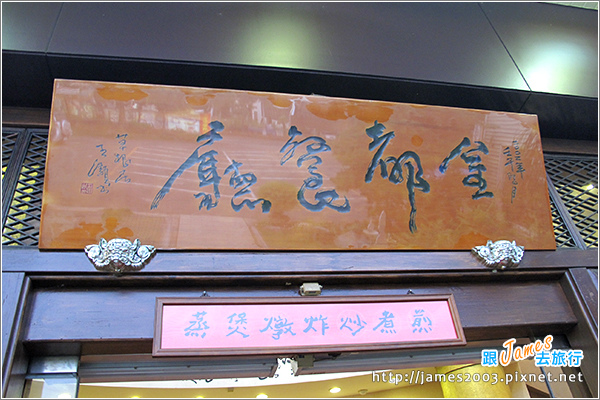 金都餐廳
煎煮炒炸燉煲蒸
跟James去旅行
http://james2003.pixnet.net